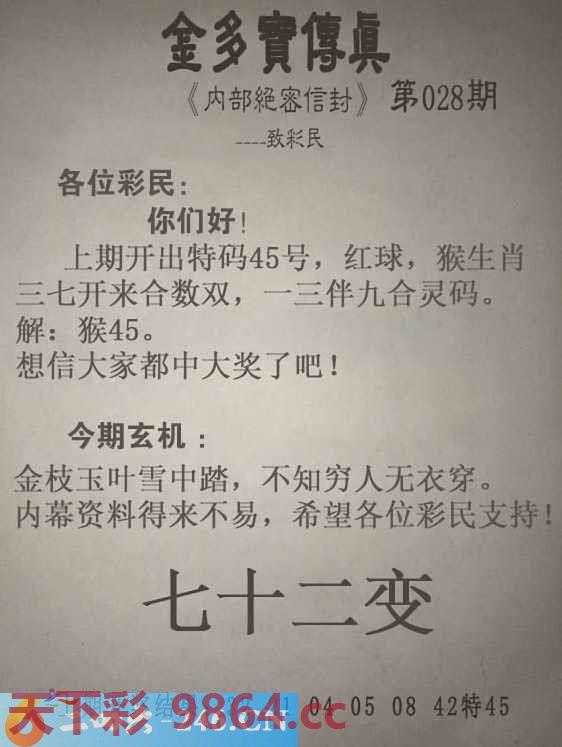 金多寶傳真
《内部絶密信封》第028期
----致彩民
各位彩民：
你们好！
上期开出特码45号，红球，猴生肖
三七开来合数双，一三伴九合灵码。
解：猴45。
想信大家都中大奖了吧！
今期玄机：
金枝玉叶雪中踏，不知穷人无衣穿。
内幕资料得来不易，希望各位彩民支持！
七十二变
04 05 08 42特45
天下彩 9864.cc